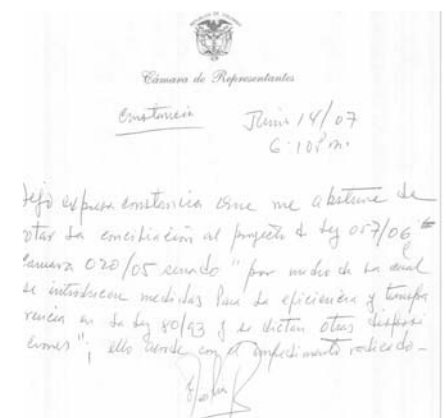 REPÚBLICA DE COLOMBIA
Cámara de Representantes
Constancia
Junio 14/07
6:10 P.m.
dejo expresa constancia que me abstuve de
votar la conciliación al proyecto de Ley 057/06
Camara 020/05 senado "por medio de la cual
se introducen medidas para la eficiencia y transpa
rencia en la Ley 80/93 y se dictan otras disposi
ciones"; ello acorde con el impedimento radicado-